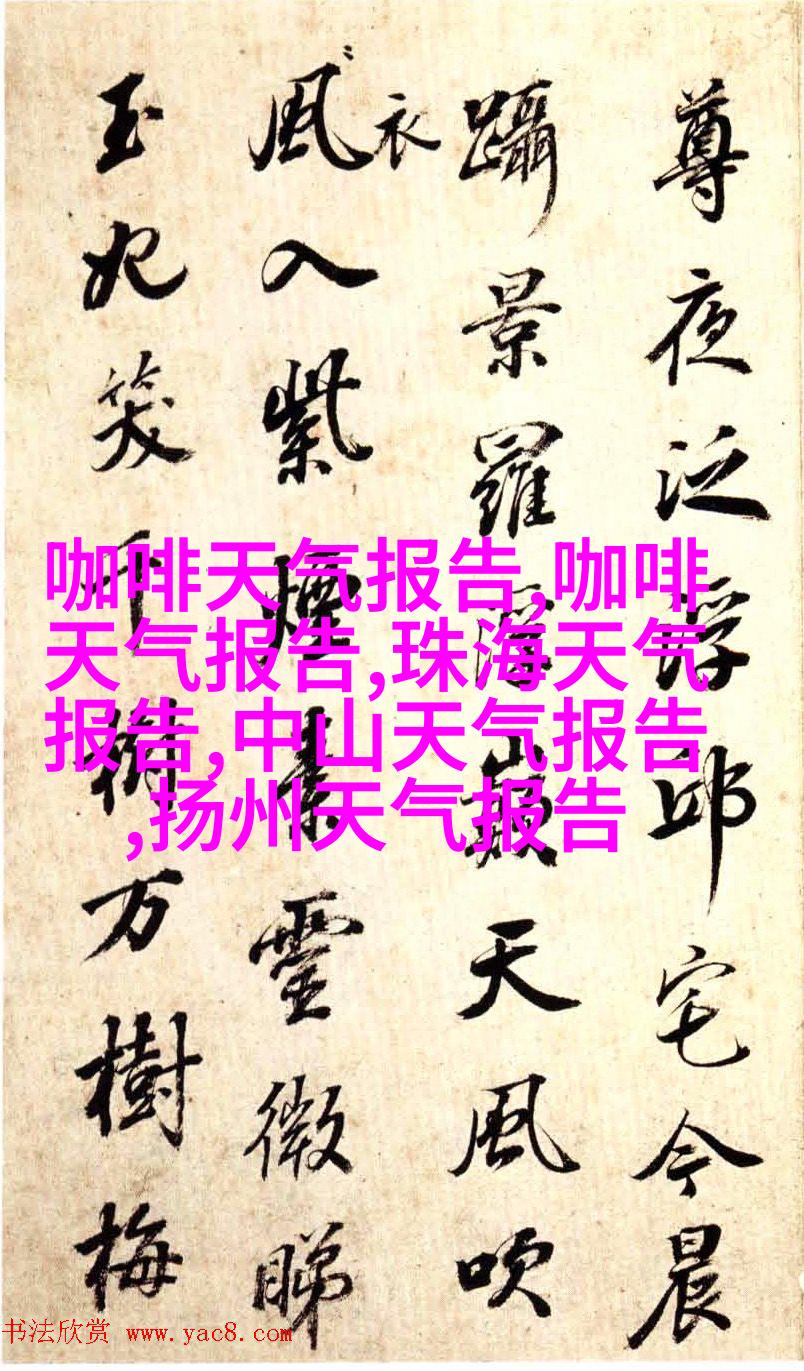 尊夜泛浮邱宅今晨
躡景羅浮巔天風吹
衣
風入紫煙素靈微睇
玉妃笑千樹万樹梅
咖啡天气报告,咖啡
天气报告,珠海天气
报告,中山天气报告
,扬州天气报告
书法欣赏 www.yac8.com